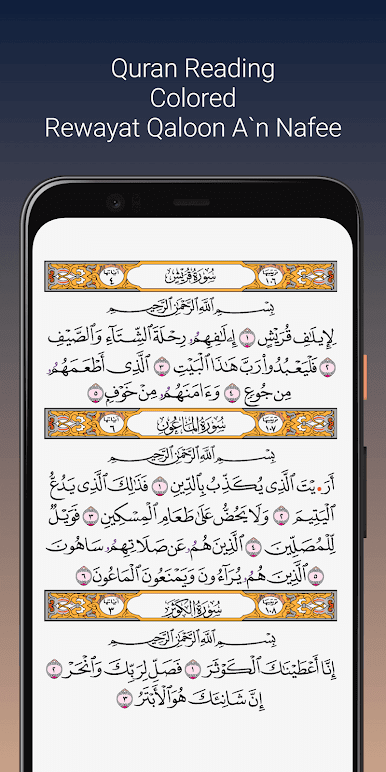 Quran Reading
Colored
Rewayat Qaloon A`n Nafee
ترتيبها ١٠٦ سُورَةُ قُرَيْشٍ آياتها ٤
بِسْمِ اِ۬للَّهِ اِ۬لرَّحْمَٰنِ اِ۬لرَّحِيمِ
لِإِيلَٰفِ قُرَيْشٍ ١ إِۦلَٰفِهِمُۥ رِحْلَةَ اَ۬لشِّتَآءِ وَالصَّيْفِ
٢ فَلْيَعْبُدُواْ رَبَّ هَٰذَا اَ۬لْبَيْتِ ٣ اِ۬لَّذِى أَطْعَمَهُمُۥ
مِن جُوعٍ ٤ وَءَامَنَهُمُۥ مِنْ خَوْفٍ ٥
ترتيبها ١٠٧ سُورَةُ اُ۬لْمَاعُونِ آياتها ٦
بِسْمِ اِ۬للَّهِ اِ۬لرَّحْمَٰنِ اِ۬لرَّحِيمِ
أَرَ•يْتَ اَ۬لَّذِى يُكَذِّبُ بِالدِّينِ ١ فَذَٰلِكَ اَ۬لَّذِى يَدُعُّ
اُ۬لْيَتِيمَ ٢ وَلَا يَحُضُّ عَلَىٰ طَعَامِ اِ۬لْمِسْكِينِ ٣ فَوَيْلٌ
لِّلْمُصَلِّينَ ٤ اَ۬لَّذِينَ هُمُۥ عَن صَلَاتِهِمُۥ سَاهُونَ
٥ اَ۬لَّذِينَ هُمُۥ يُرَآءُونَ وَيَمْنَعُونَ اَ۬لْمَاعُونَ ٦
ترتيبها ١٠٨ سُورَةُ اُ۬لْكَوْثَرِ آياتها ٣
بِسْمِ اِ۬للَّهِ اِ۬لرَّحْمَٰنِ اِ۬لرَّحِيمِ
إِنَّا أَعْطَيْنَٰكَ اَ۬لْكَوْثَرَ ١ فَصَلِّ لِرَبِّكَ وَانْحَرْ ٢
إِنَّ شَانِئَكَ هُوَ اَ۬لْأَبْتَرُ ٣